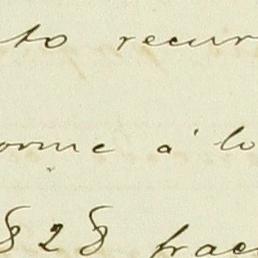 to recur
orme á lo
§ 2 § frac